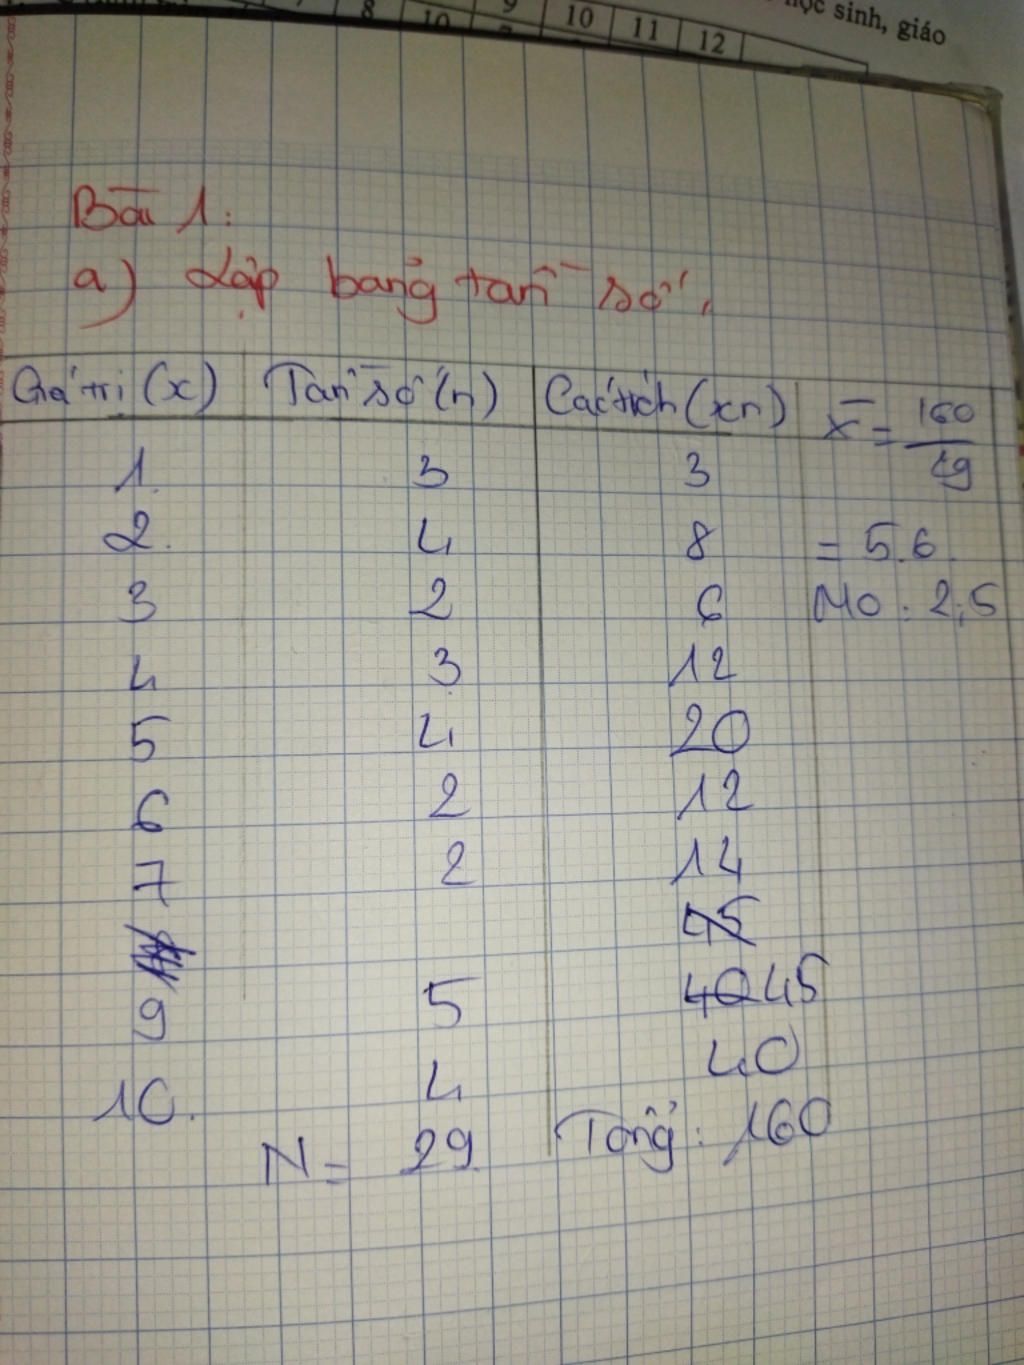 học sinh, giáo
8 10 9 10 11 12
Bài 1:
a) Lập bảng tần số.
Giá trị (x) Tần số (n) Các tích (xn) x̄ = 160/29
1. 3 3
2. 4 8 = 5.6
3 2 6 M0 : 2;5
4 3 12
5 4 20
6 2 12
7 2 14
45
9 5 40 45
10. 4 40
N = 29 Tổng: 160